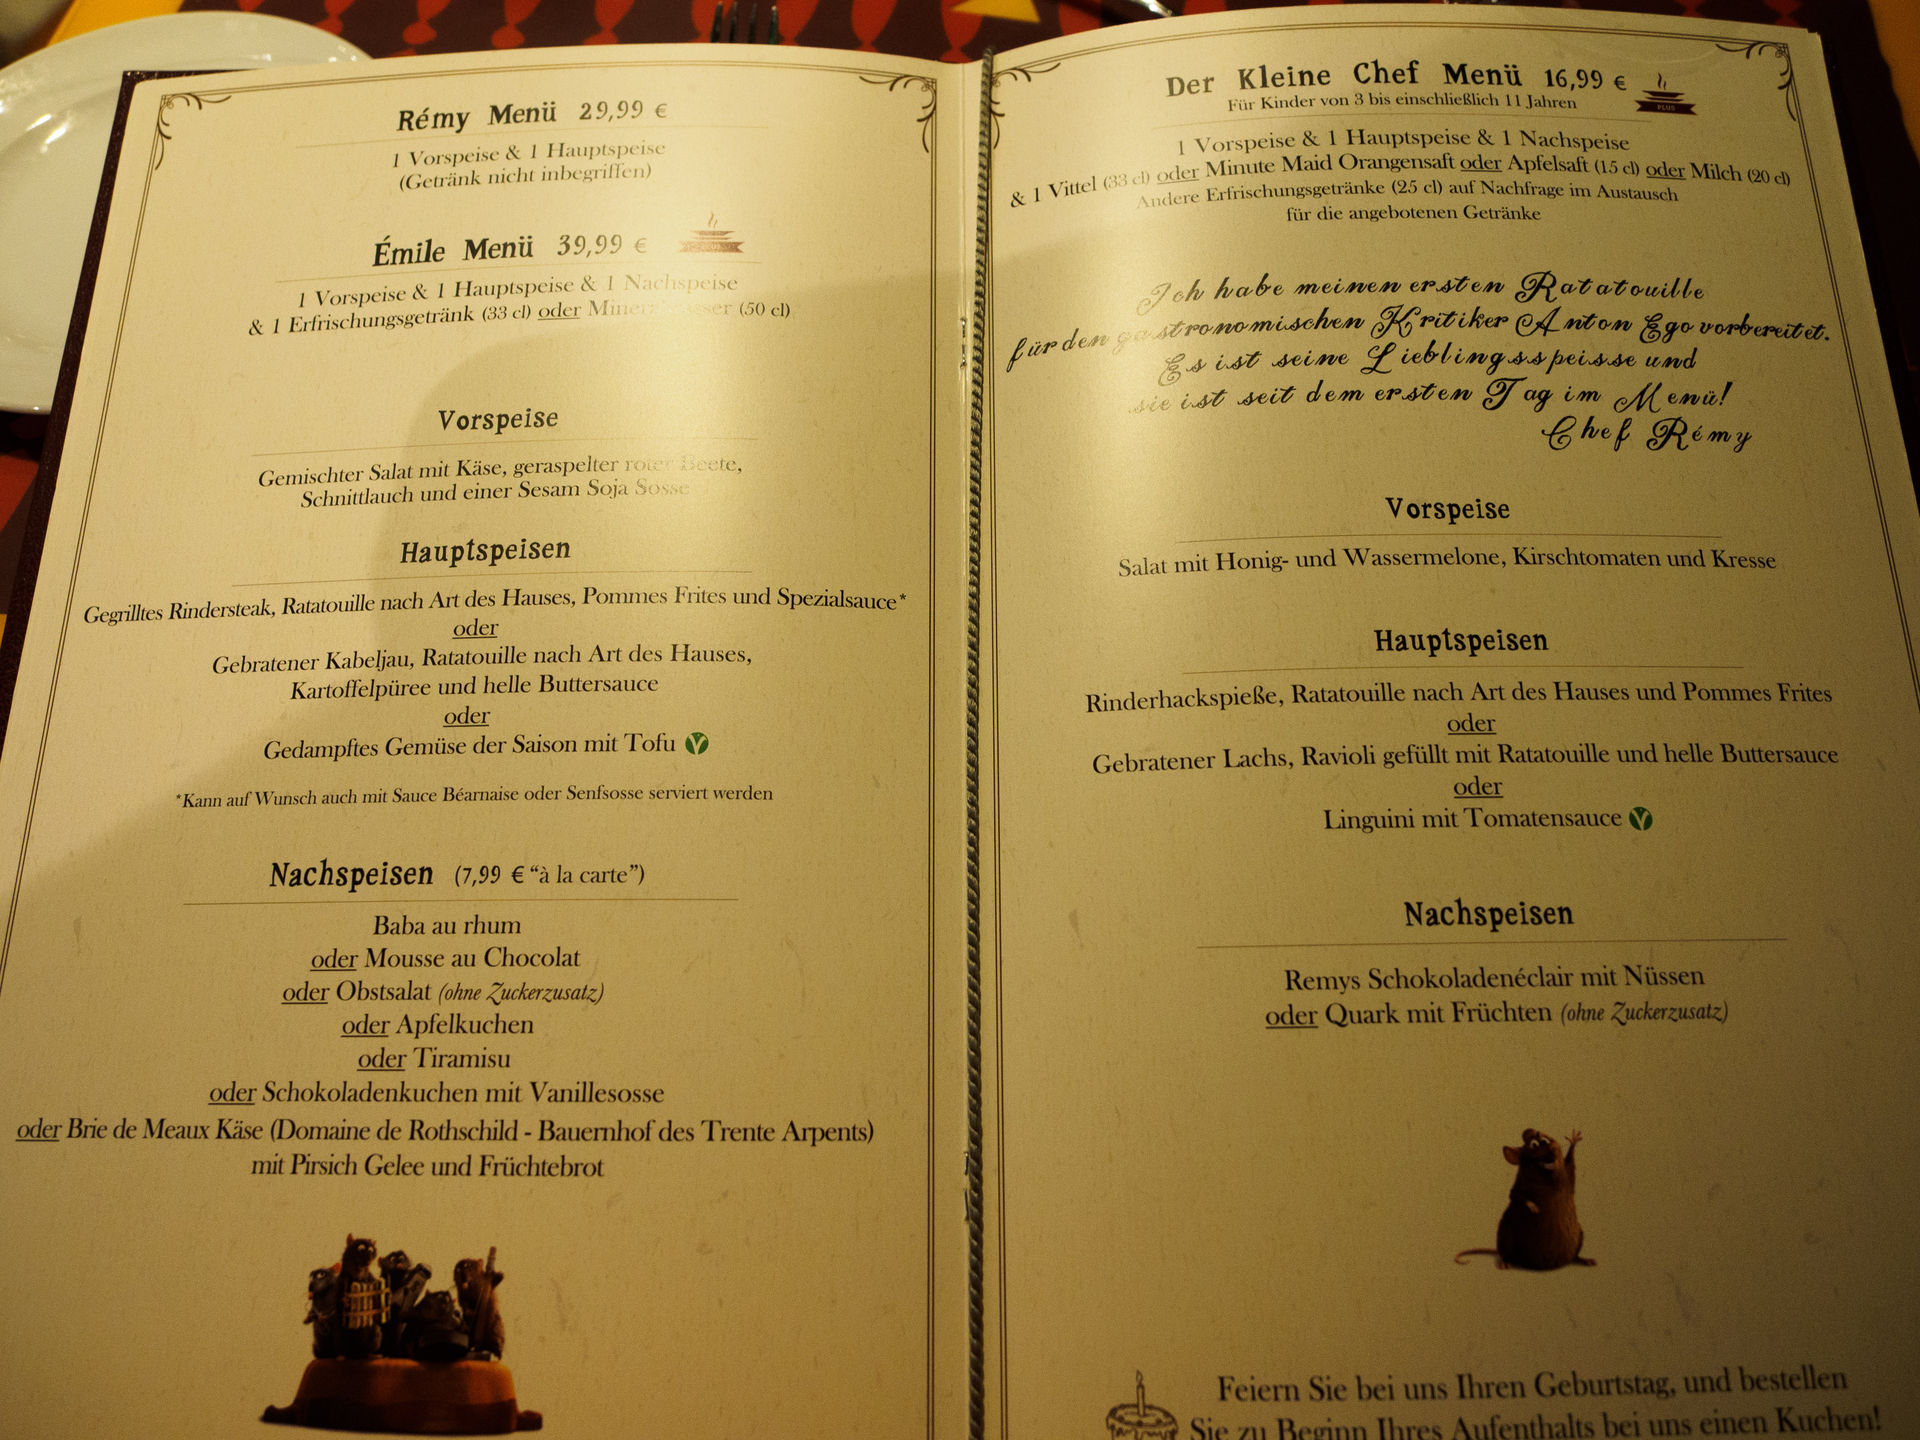 Rémy Menü 29,99 €
1 Vorspeise & 1 Hauptspeise
(Getränk nicht inbegriffen)
Émile Menü 39,99 €
1 Vorspeise & 1 Hauptspeise & 1 Nachspeise
& 1 Erfrischungsgetränk (33 cl) oder Mineralwasser (50 cl)
Vorspeise
Gemischter Salat mit Käse, geraspelter roter Beete,
Schnittlauch und einer Sesam Soja Sosse
Hauptspeisen
Gegrilltes Rindersteak, Ratatouille nach Art des Hauses, Pommes Frites und Spezialsauce*
oder
Gebratener Kabeljau, Ratatouille nach Art des Hauses,
Kartoffelpüree und helle Buttersauce
oder
Gedampftes Gemüse der Saison mit Tofu
*Kann auf Wunsch auch mit Sauce Béarnaise oder Senfsosse serviert werden
Nachspeisen (7,99 € “à la carte”)
Baba au rhum
oder Mousse au Chocolat
oder Obstsalat (ohne Zuckerzusatz)
oder Apfelkuchen
oder Tiramisu
oder Schokoladenkuchen mit Vanillesosse
oder Brie de Meaux Käse (Domaine de Rothschild - Bauernhof des Trente Arpents)
mit Pirsich Gelee und Früchtebrot
Der Kleine Chef Menü 16,99 €
PLUS
Für Kinder von 3 bis einschließlich 11 Jahren
1 Vorspeise & 1 Hauptspeise & 1 Nachspeise
& 1 Vittel (33 cl) oder Minute Maid Orangensaft oder Apfelsaft (15 cl) oder Milch (20 cl)
Andere Erfrischungsgetränke (25 cl) auf Nachfrage im Austausch
für die angebotenen Getränke
Ich habe meinen ersten Ratatouille
für den gastronomischen Kritiker Anton Ego vorbereitet.
Es ist seine Lieblingsspeisse und
sie ist seit dem ersten Tag im Menü!
Chef Rémy
Vorspeise
Salat mit Honig- und Wassermelone, Kirschtomaten und Kresse
Hauptspeisen
Rinderhackspieße, Ratatouille nach Art des Hauses und Pommes Frites
oder
Gebratener Lachs, Ravioli gefüllt mit Ratatouille und helle Buttersauce
oder
Linguini mit Tomatensauce
Nachspeisen
Remys Schokoladenéclair mit Nüssen
oder Quark mit Früchten (ohne Zuckerzusatz)
Feiern Sie bei uns Ihren Geburtstag, und bestellen
Sie zu Beginn Ihres Aufenthalts bei uns einen Kuchen!